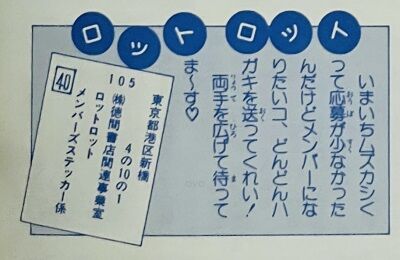 ロットロット
いまいちムズカシく
って応募が少なかった
んだけどメンバーにな
りたいコ、どんどんハ
ガキを送ってくれい!
両手を広げて待って
ま〜す♡
40
105
東京都港区新橋
4の10の1
㈱徳間書店関連事業室
ロットロット
メンバーズステッカー係